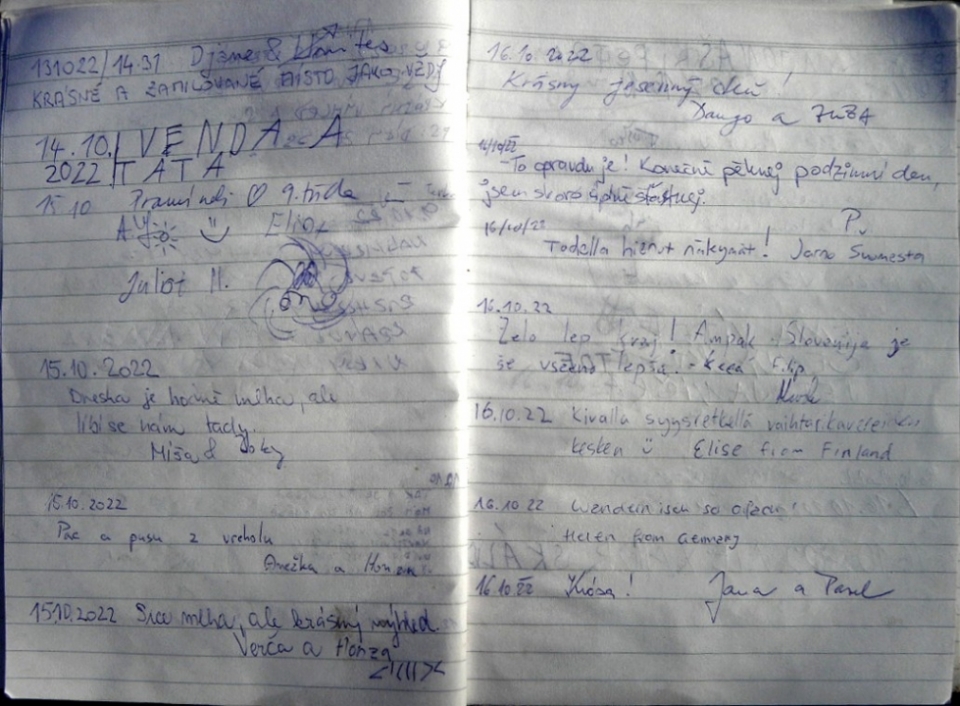 131022/14:31
KRÁSNÉ A ZAMILOVANÉ MÍSTO JAKO VŽDY
14.10. VENDA A
2022 TÁTA
15.10 9. třída
Juliot H.
15.10.2022
Dneska je hodně mlha, ale
líbí se nám tady.
Míša &
15.10.2022
Pac a pusu z vrcholu
Anežka a Honza
15.10.2022 Sice mlha, ale krásný výhled
Verča a Honza
16.10.2022
Krásný jesenný deň!
a ZUBA
16/10/22
-To opravdu je! Konečně pěknej podzimní den,
jsem skoro šťastnej.
P.
16/10/22
Todella hienot näkymät! Jarno Suomesta
16.10.22
Zelo lep kraj! Ampak Slovenija je
še vseeno lepša. Filip
16.10.22 Kivalla syysretkellä
kesken Elise from Finland
16.10.22 Wandern isch so
Helen from Germany
16.10.22 Krása! Jana a Pavel